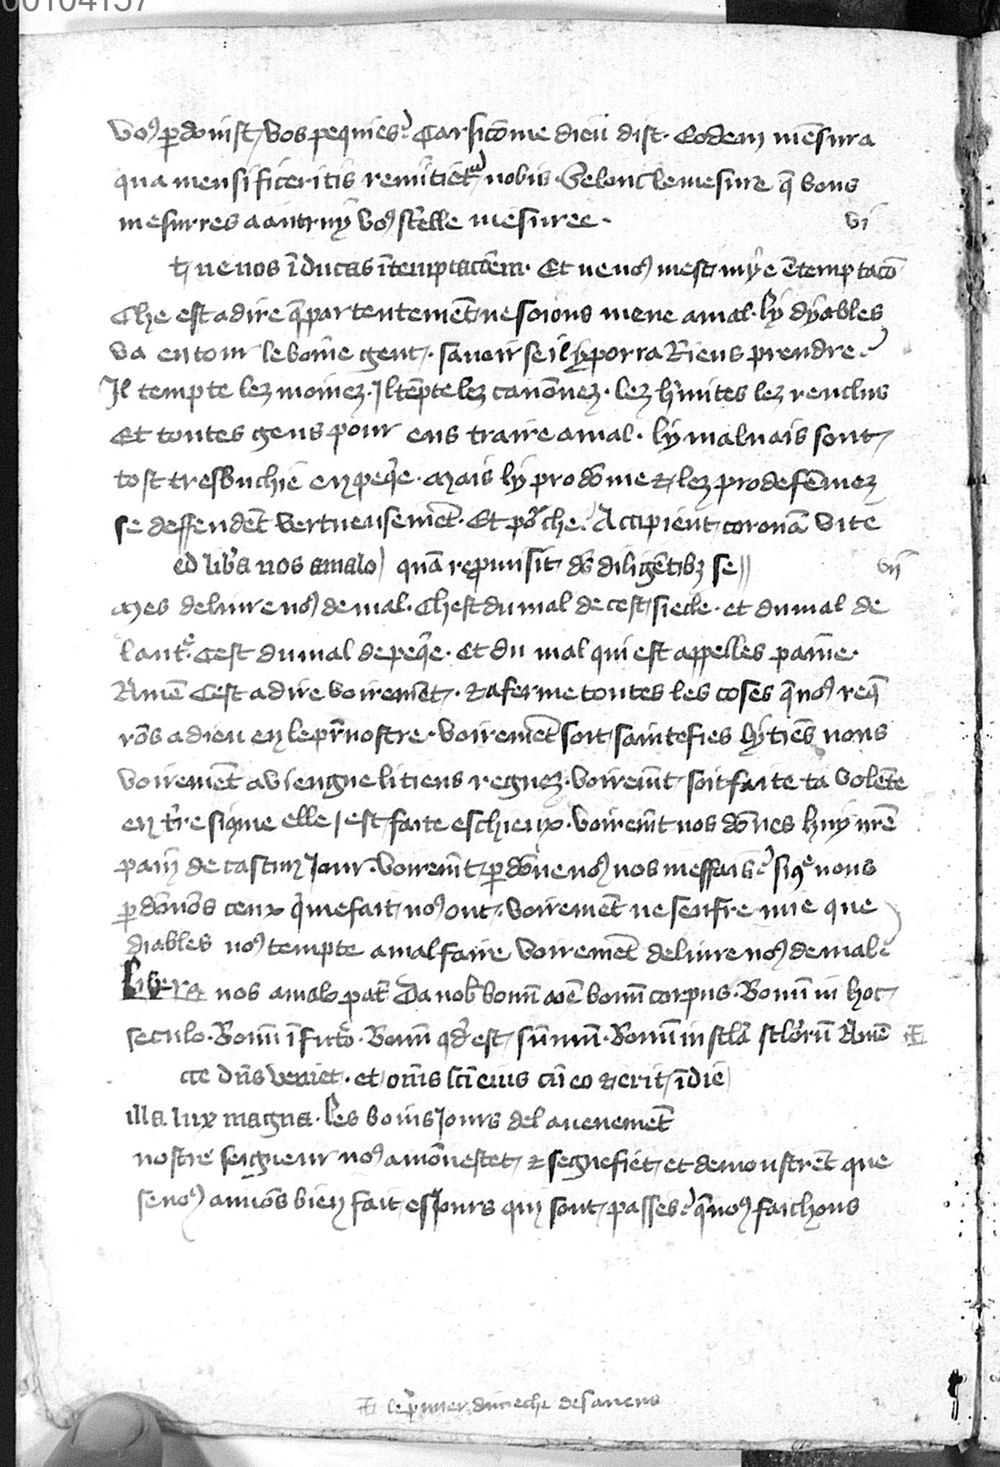 00104137
vo9 pdoinst vos pequies. Car sicōme dieu dist. Eodem mēsura
qua mensi ficeritis remitiet nobis. Selonc le mesure q̄ vous
mesurres a autruy vo9 s'elle mesuree. vi
t ne nos īducas ītemptactēm. Et ne no9 mest mye ētemptacō
Che est a dire q̄ par tentemēt ne soions mene a mal. Ly dyables
va entour le boīne gent. savoir se il y porra Riens prendre.
Il tempte lez moinez. Il tēpte lez canōnez. lez h'mites lez renclus
Et toutes gens pour eus traire a mal. ly malvais sont
tost tresbuchie en peq̄e. Mais ly prodōme & lez prodefēmez
se deffendēt vertueusemēt. Et po'che. Accipient coronā vite
ed lib'a nos amalo quā repmisit d's diligētib3 se vii
Mes delivre no9 de mal. Ch est du mal de cest siecle. et du mal de
laut'e. Cest du mal de peq̄e. Et du mal qui est appelles paīne.
Amē Cest a dire voiremēt. & aferme toutes les coses q̄ no9 req̄
rōs a dieu en le pr̄ nostre. Voiremēt soit saintefies ly tiēs nons
Voiremēt aviengne li tiens regnez. Voiremt soit faite ta volēte
en t're siqme elle j est faite es chieux. Voiremt nos dōnes huy nrē
pain de cascun Jour. Voiremt pdōne no9 nos meffais. si q̄ nous
pdōnōs ceux q' meffait no9 ont. Voiremēt ne seufre mie que
diables no9 tempte a mal faire Voiremēt delivre no9 de mal
Libera nos amalo pat' Da nob' bonū om̄e bonū corpus. Bonū in hoc
seculo. Bonū ī futo. Bonū qd' est sūmū. Bonū in sc̄la sc̄lorū Amē
cce dn̄s veniet. et om̄s sc̄i eius cū eo & erit īdie
illa lux magna. Les boins Jours del avenemēt
nostre seigneur no9 amōnestet & segnefiet et demonstrēt que
se no9 avuōs bien fait es Jours qui sont passes. q̄ no9 faichons
le p'mier